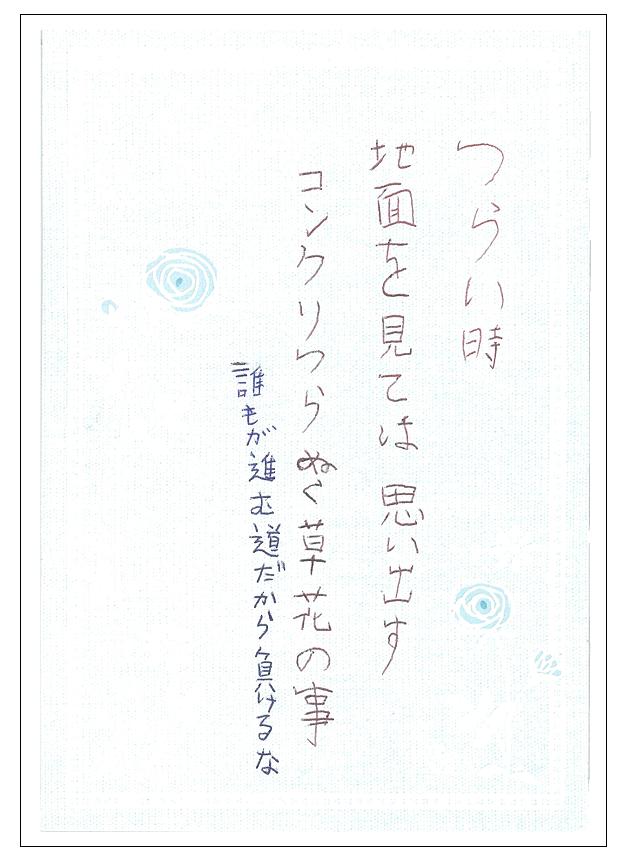 つらい時
地面を見ては 思い出す
コンクリつらぬく草花の事
誰もが進む道だから負けるな